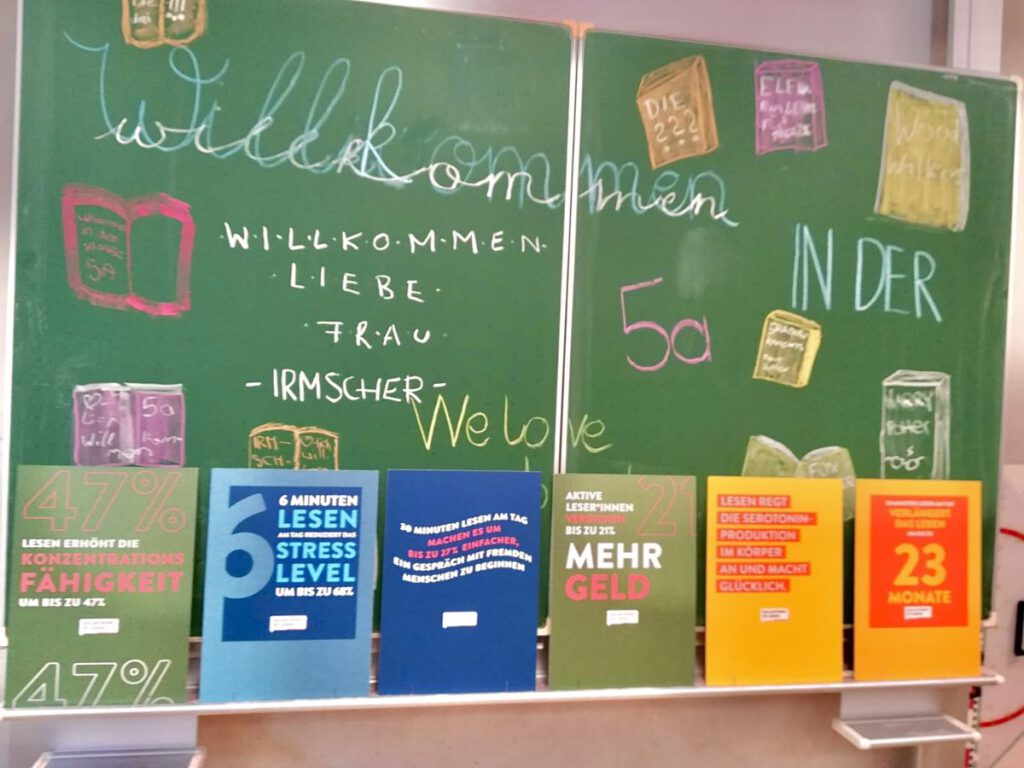 Willkommen
willkommen
WILLKOMMEN
LIEBE
FRAU
-IRMSCHER-
We love
5a
IN DER
DIE
???
Wood
Walkers
HARRY
Potter
5A
♡-
lich
Will
men
5a
komm
IRM-
SCH-
47%
LESEN ERHÖHT DIE
KONZENTRATIONS
FÄHIGKEIT
UM BIS ZU 47%
47%
6
6 MINUTEN
LESEN
AM TAG REDUZIERT DAS
STRESS
LEVEL
UM BIS ZU 68%
30 MINUTEN LESEN AM TAG
MACHEN ES UM
BIS ZU 27% EINFACHER,
EIN GESPRÄCH MIT FREMDEN
MENSCHEN ZU BEGINNEN
21
AKTIVE
LESER*INNEN
VERDIENEN
BIS ZU 21%
MEHR
GELD
LESEN REGT
DIE SEROTONIN-
PRODUKTION
IM KÖRPER
AN UND MACHT
GLÜCKLICH.
VERLÄNGERT
DAS LEBEN
UM BIS ZU
23
MONATE